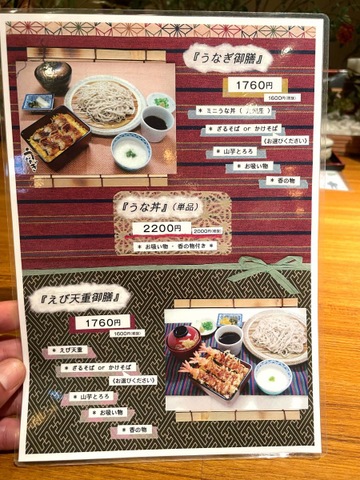 『うなぎ御膳』
1760円
1600円(税抜)
* ミニうな丼
* ざるそば or かけそば
(お選びください)
* 山芋とろろ
* お吸い物
* 香の物
『うな丼』(単品)
2200円
2000円(税抜)
* お吸い物・香の物付き *
『えび天重御膳』
1760円
1600円(税抜)
* えび天重
* ざるそば or かけそば
(お選びください)
* 山芋とろろ
* お吸い物
* 香の物